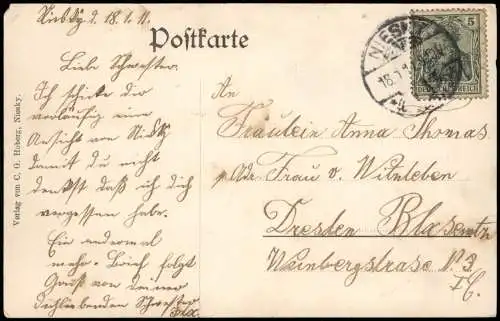 Niesky d. 18.1.11.
Postkarte
Liebe Schwester.
Ich schicke dir
vorläufig eine
Ansicht von Nisky
damit du nicht
denkst daß ich dich
vergessen habe.
Ein andermal
mehr. Brief folgt
Gruß von deiner
dichliebenden Schwester
Verlag von C. G. Hoberg, Niesky.
NIESKY
18.1.11
5
DEUTSCHES REICH
An
Fräulein Anna Thomas
pAdr. Frau v. Witzleben
Dresden Blasewitz
Weinbergstrase No 3.